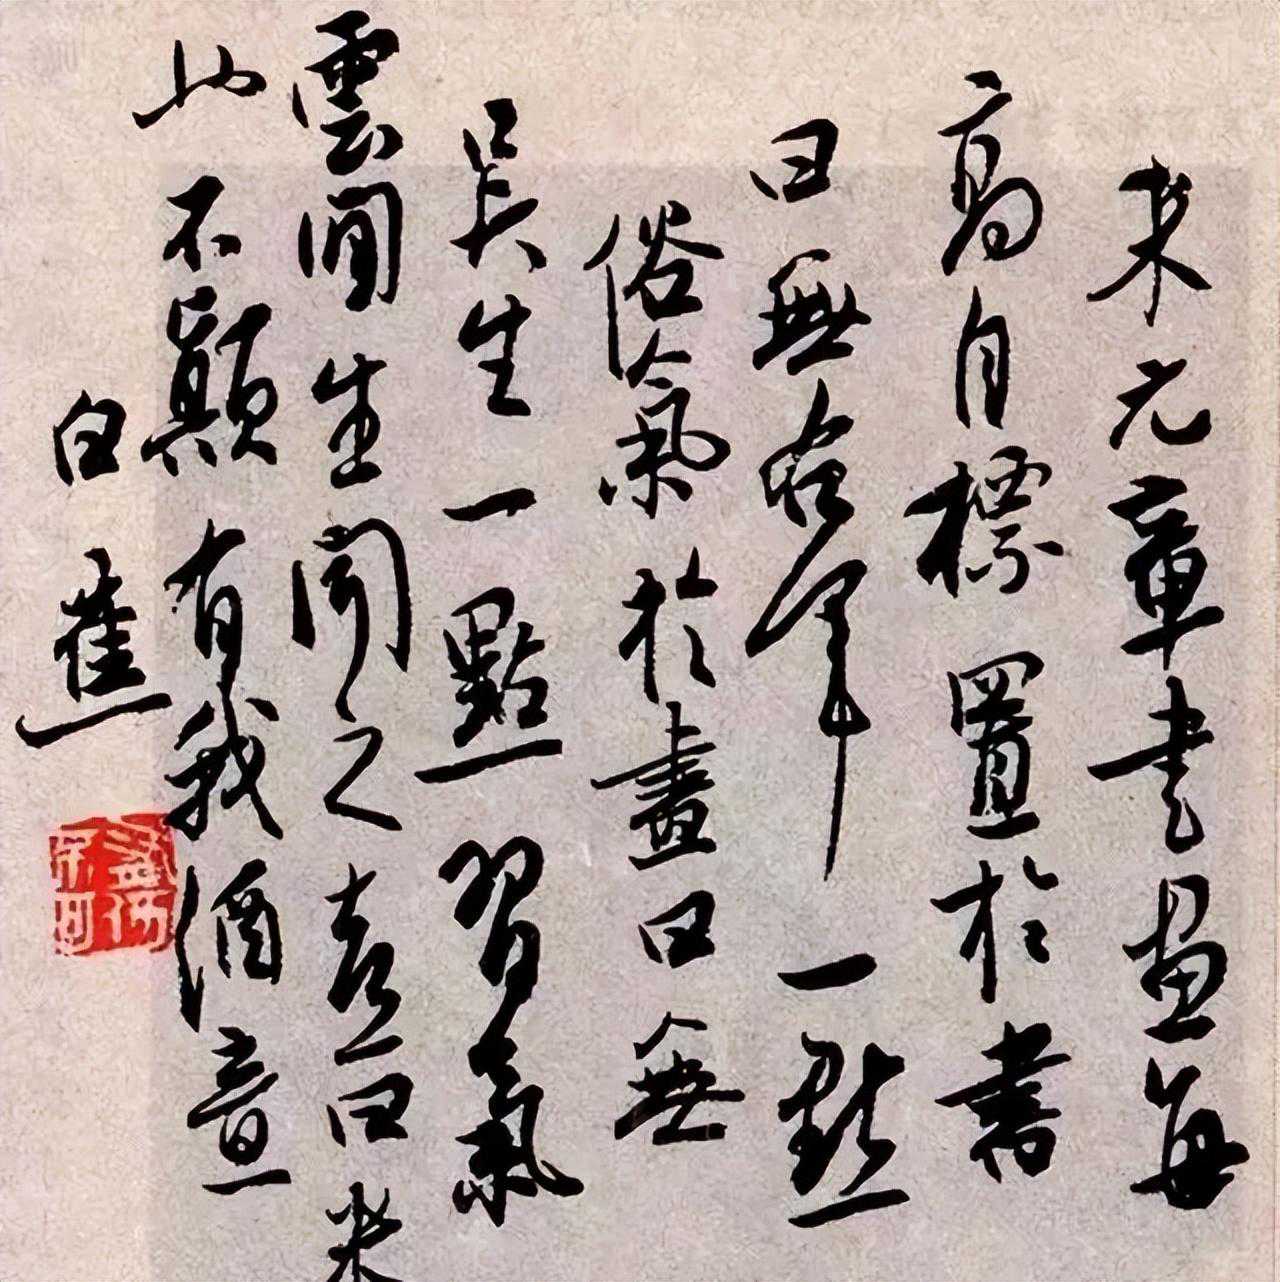 米元章書畫每
高自標置於書
曰無右軍一點
俗氣於畫曰無
吳生一點習氣
雲間生聞之喜曰米
不顛有我酒意
白蕉